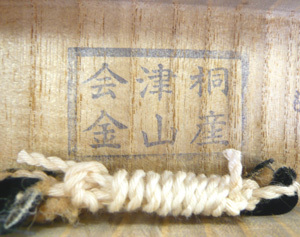 会津桐
金山産